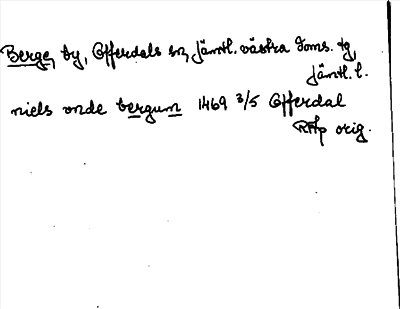 Berge, by, Offerdals sn, Jämtl. västra doms. tg,
Jämtl. l.
niels onde bergum 1469 3/5 Offerdal
RAp orig.